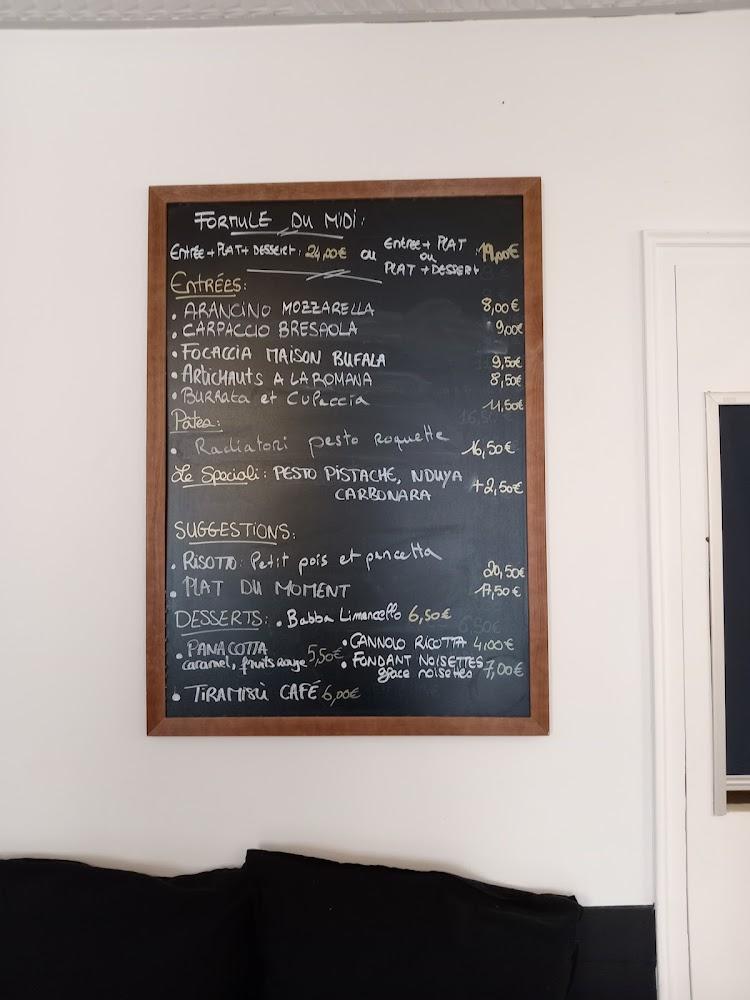 FORMULE DU MIDI:
ENTRÉE + PLAT + DESSERT: 24,00€ ou ENTREE + PLAT ou PLAT + DESSERT :19,00€
ENTRÉES:
• ARANCINO MOZZARELLA 8,00€
• CARPACCIO BRESAOLA 9,00€
• FOCACCIA MAISON BUFALA 9,50€
• ARTICHAUTS A LA ROMANA 8,50€
• BURRATA et CULACCIA 11,50€
Pates:
• Radiatori pesto roquette 16,50€
Le Speciali: PESTO PISTACHE, NDUYA +2,50€
CARBONARA
SUGGESTIONS:
• RISOTTO: Petit pois et pancetta 20,50€
• PLAT DU MOMENT 17,50€
DESSERTS: • Babba Limancello 6,50€
• PANACOTTA 5,50€
caramel, fruits rouge
• CANNOLO RICOTTA 4,00€
• FONDANT NOISETTES 7,00€
glace noisettes
• TIRAMISÙ CAFÉ 6,00€